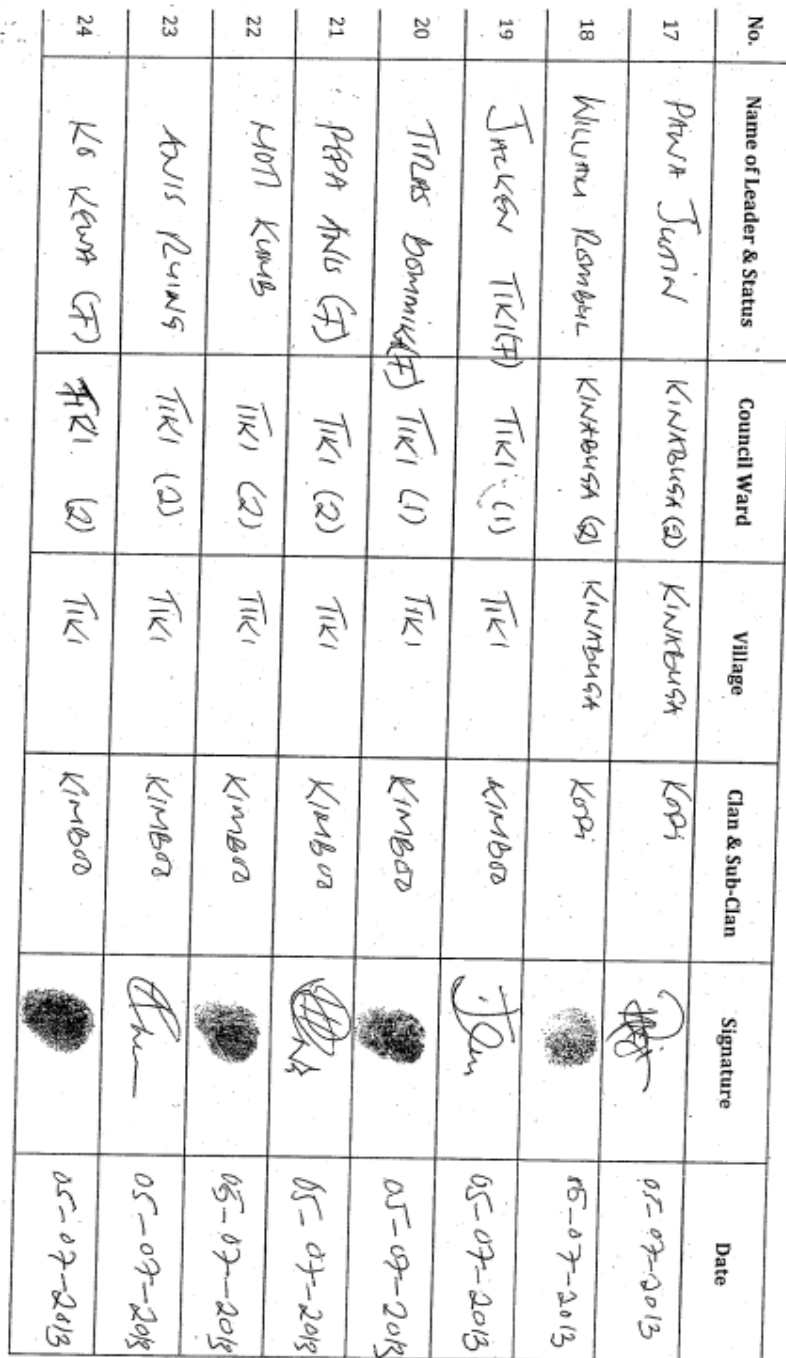 No. Name of Leader & Status Council Ward Village Clan & Sub-Clan Signature Date
17 PAWA JUSTIN KINABUGA (2) KINABUGA KOPI 05-07-2013
18 WILLIAM ROMBUL KINABUGA (2) KINABUGA KOPI 05-07-2013
19 JACKEN TIKI (F) TIKI (1) TIKI KIMBOO 05-07-2013
20 TIRAS (F) TIKI (1) TIKI KIMBOO 05-07-2013
21 PEPA ANIS (F) TIKI (2) TIKI KIMBOO 05-07-2013
22 KUMB TIKI (2) TIKI KIMBOO 05-07-2013
23 ANIS RUING TIKI (2) TIKI KIMBOO 05-07-2013
24 KO KEWA (F) TIKI (2) TIKI KIMBOO 05-07-2013